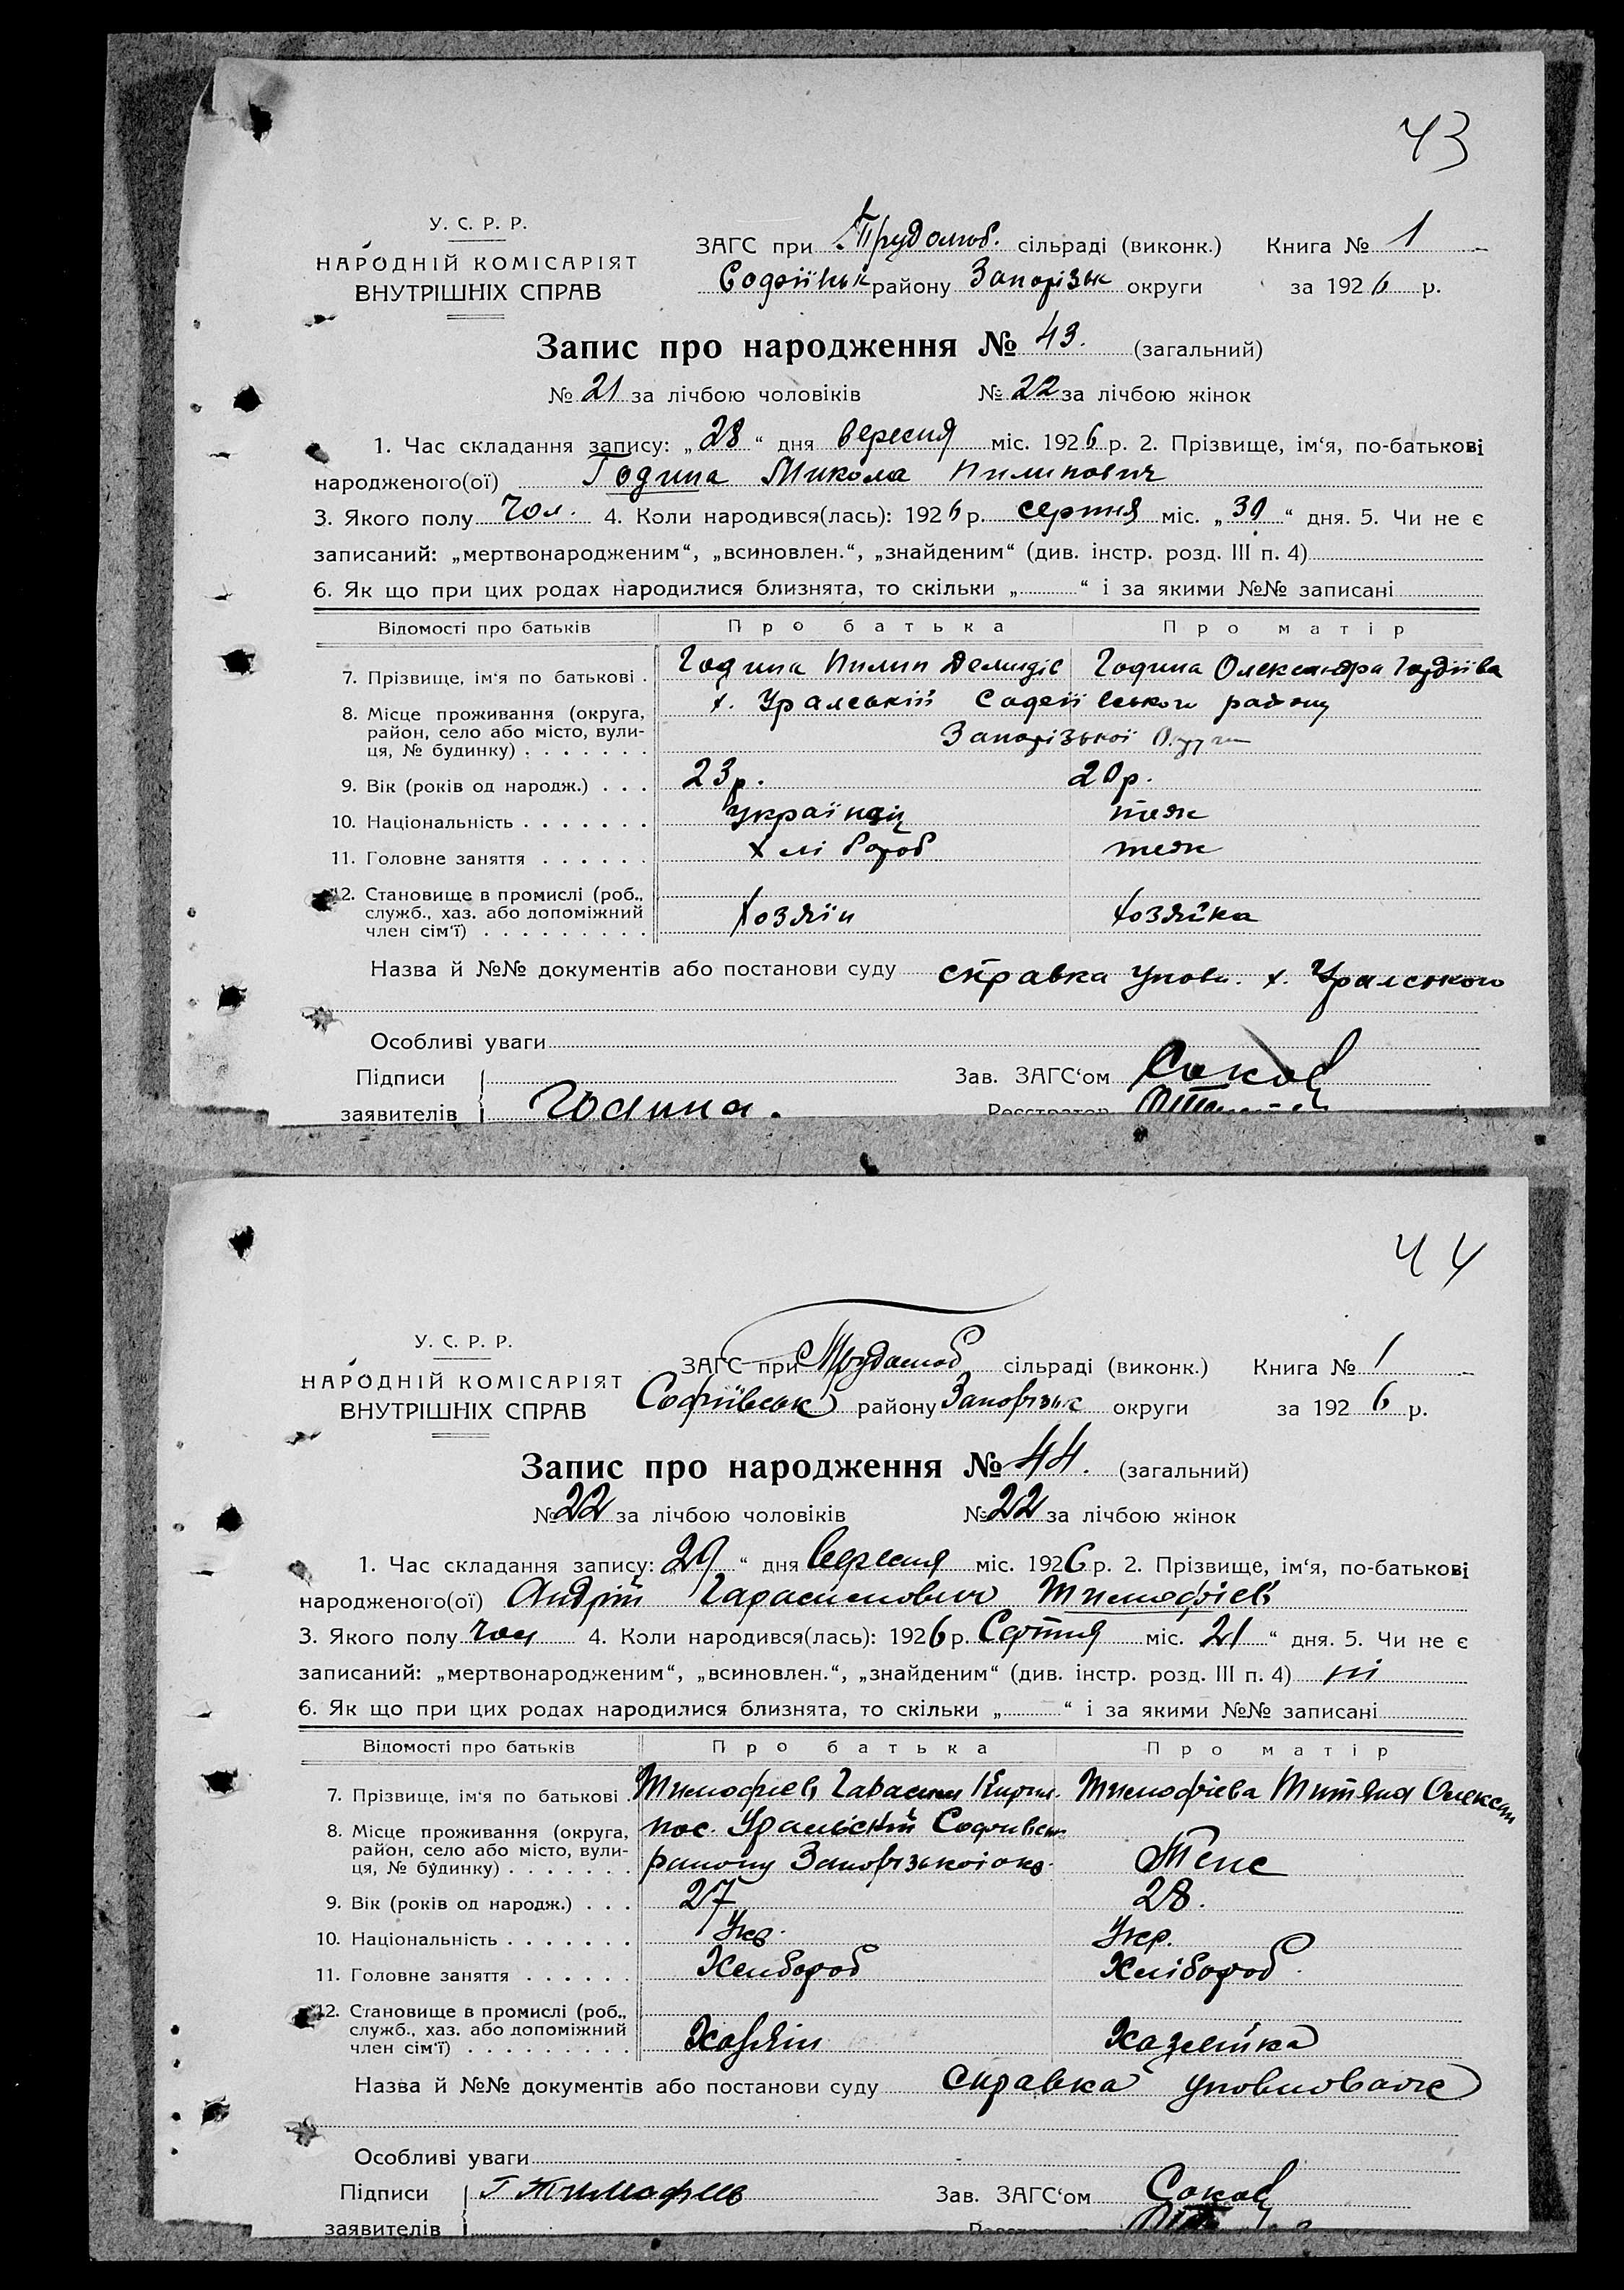 43
У. С. Р. Р.
НАРОДНІЙ КОМІСАРІЯТ
ВНУТРІШНІХ СПРАВ
ЗАГС при Трудолюб. сільраді (виконк.) Книга № 1
Софіївськ району Запорізьк округи за 1926 р.
Запис про народження № 43. (загальний)
№ 21 за лічбою чоловіків № 22 за лічбою жінок
1. Час складання запису: „28“ дня вересня міс. 1926 р. 2. Прізвище, ім‘я, по-батькові
народженого(ої) Година Микола Пилипович
3. Якого полу чол. 4. Коли народився(лась): 1926 р. серпня міс. „30“ дня. 5. Чи не є
записаний: „мертвонародженим“, „всиновлен.“, „знайденим“ (див. інстр. розд. III п. 4)
6. Як що при цих родах народилися близнята, то скільки „ “ і за якими №№ записані
Відомості про батьків Про батька Про матір
7. Прізвище, ім‘я по батькові . Година Пилип Демидів Година Олександра Гордіїва
8. Місце проживання (округа, район, село або місто, вулиця, № будинку) . . . . . . . х. Уральській Софіївського району
Запорізької Округи
9. Вік (років од народж.) . . . 23 р. 20 р.
10. Національність . . . . . . . українец теж
11. Головне заняття . . . . . . хлібороб теж
12. Становище в промислі (роб., служб., хаз. або допоміжний член сім‘ї) . . . . . . . . . Хозяїн Хозяйка
Назва й №№ документів або постанови суду справка упов. х. Уралського
Особливі уваги
Підписи Зав. ЗАГС‘ом Соков
заявителів Година. Реєстратор
44
У. С. Р. Р.
НАРОДНІЙ КОМІСАРІЯТ
ВНУТРІШНІХ СПРАВ
ЗАГС при Трудолюб сільраді (виконк.) Книга № 1
Софиївськ району Запорізьк округи за 1926 р.
Запис про народження № 44. (загальний)
№ 22 за лічбою чоловіків № 22 за лічбою жінок
1. Час складання запису: „29“ дня Вересня міс. 1926 р. 2. Прізвище, ім‘я, по-батькові
народженого(ої) Андрій Гарасимович Тимофієв
3. Якого полу чол 4. Коли народився(лась): 1926 р. Серпня міс. 21“ дня. 5. Чи не є
записаний: „мертвонародженим“, „всиновлен.“, „знайденим“ (див. інстр. розд. III п. 4) ні
6. Як що при цих родах народилися близнята, то скільки „ “ і за якими №№ записані
Відомості про батьків Про батька Про матір
7. Прізвище, ім‘я по батькові . Тимофиев Гарасим Кирил. Тимофієва Титяна Олексан
8. Місце проживання (округа, район, село або місто, вулиця, № будинку) . . . . . . . пос. Уральскій Софиївськ
району Запорізької окр. Теж
9. Вік (років од народж.) . . . 27 28.
10. Національність . . . . . . . Укр. Укр.
11. Головне заняття . . . . . . Хлибороб Хлібороб
12. Становище в промислі (роб., служб., хаз. або допоміжний член сім‘ї) . . . . . . . . . Хазяїн Хазяйка
Назва й №№ документів або постанови суду Справка
Особливі уваги
Підписи Г Тимофеев Зав. ЗАГС‘ом Соков
заявителів